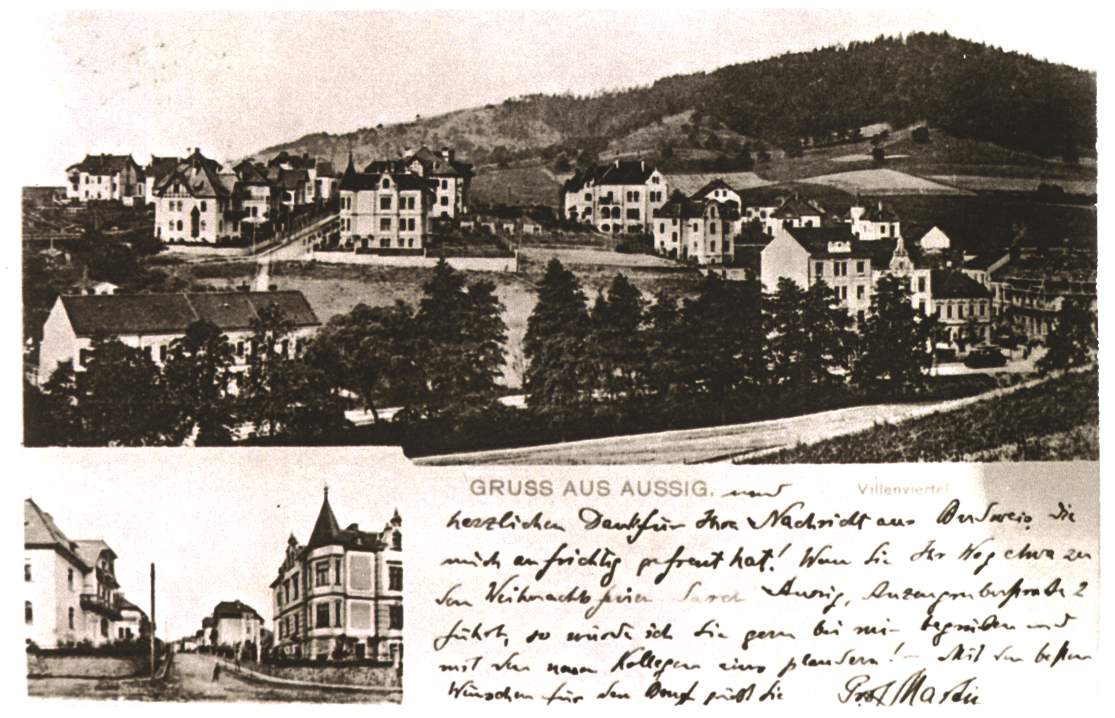 GRUSS AUS AUSSIG. und Villenviertel
herzlichen Dank für Ihre Nachricht aus Budweis, die
mich aufrichtig gefreut hat! Wenn Sie Ihr Weg etwa zu
den Weihnachtsferien durch Aussig, Anzengruberstraße 2
führt, so würde ich Sie gern bei mir begrüßen und
mit dem neuen Kollegen eins plaudern! – Mit den besten
Wünschen für den grüßt Sie Prof Martin